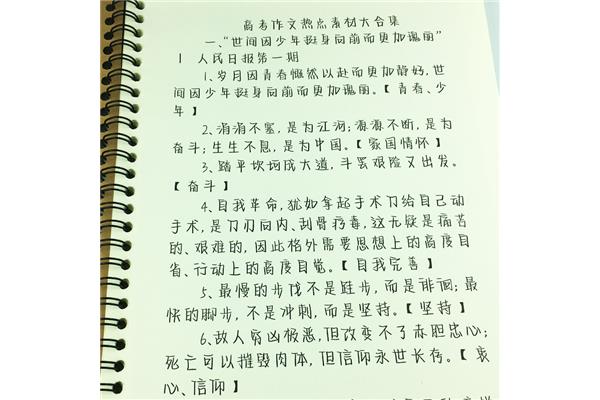 高考作文热点素材大合集
一、“世间因少年挺身向前而更加瑰丽”
1 人民日报第一期
1、岁月因青春慨然以赴而更加静好,世
间因少年挺身向前而更加瑰丽。【青春、少
年】
2、涓涓不塞,是为江河;源源不断,是为
奋斗;生生不息,是为中国。【家国情怀】
3、踏平坎坷成大道,斗罢艰险又出发。
【奋斗】
4、自我革命,犹如拿起手术刀给自己动
手术,是刀刃向内、刮骨疗毒,这无疑是痛苦
的、艰难的,因此格外需要思想上的高度自
省、行动上的高度自觉。【自我完善】
5、最慢的步伐不是跬步,而是徘徊;最
快的脚步,不是冲刺,而是坚持。【坚持】
6、敌人穷凶极恶,但改变不了赤胆忠心;
死亡可以摧毁肉体,但信仰永世长存。【衷
心、信仰】